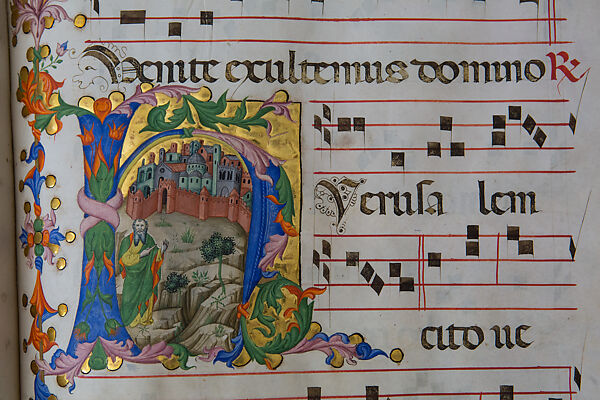 Venite exultemus domino R
H Ierusa lem
cito ue